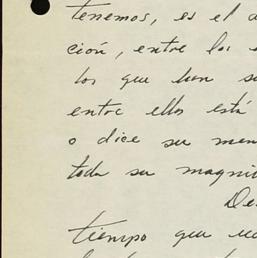 tenemos, es el a
ción, entre los
los que han su
entre ellos está
o dice su men
toda su magni
De
tiempo que